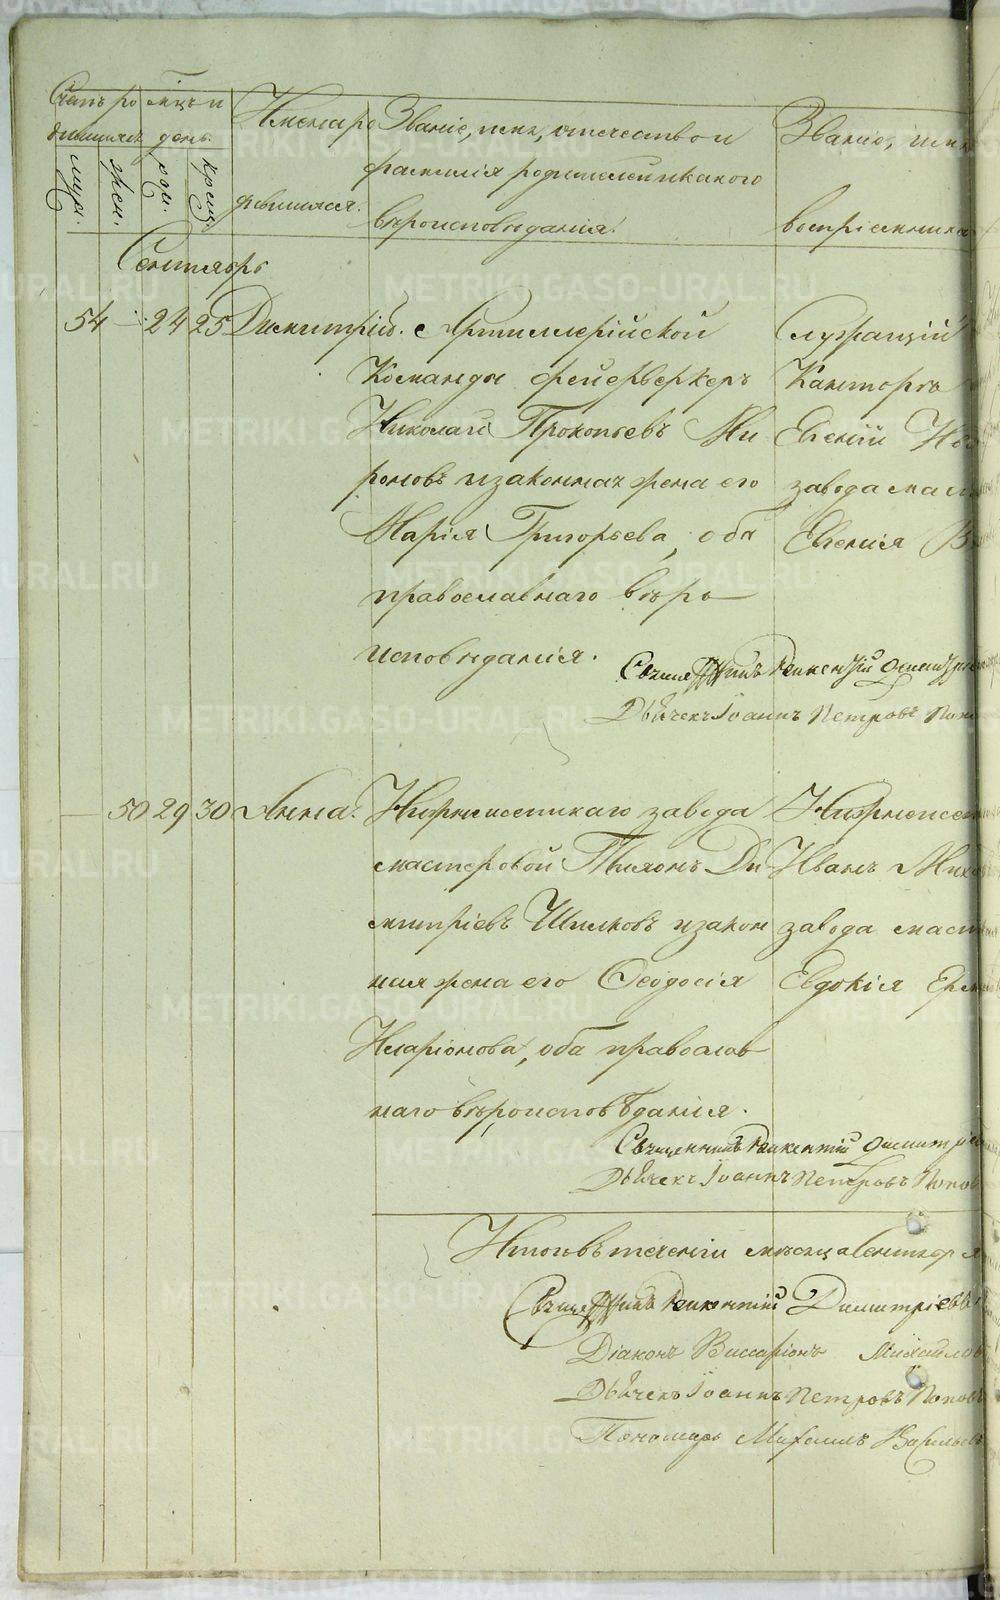 Счетъ ро
дившихся
мцъ и
день.
муж.
жен.
рож.
крещ.
Имена ро
дившихся.
Званіе, имя, отечество и
фамилія родителей и какого
вѣроисповѣданія.
Званіе, имя
воспріемника
Сентябрь
54 — 24 25 Димитрій.
Артиллерійской
Команды фейерверкеръ
Николай Прокопьевъ Ми
роновъ и законная жена его
Марія Григорьева, оба
православнаго вѣро
исповѣданія.
Служащій
Канторѣ
Евгеній
завода маст
Евгенія В
Священникъ Димитр
Дьячекъ Іоаннъ Петровъ Поп
— 50 29 30 Анна.
Нижнеисетскаго завода
мастеровой Тихонъ Ди
митріевъ Шилковъ и закон
ная жена его Феодосія
Иларіонова, оба православ
наго вѣроисповѣданія.
Нижнеисет
Иванъ Мих
завода маст
Евдокія Ерм
Священникъ Димитріе
Дьячекъ Іоаннъ Петровъ Попов
Итого въ теченіи мѣсяца Сентября
Священникъ Димитріевъ
Діаконъ Виссаріонъ Михайлов
Дьячекъ Іоаннъ Петровъ Попов
Пономарь Михаилъ Васильев
METRIKI.GASO-URAL.RU